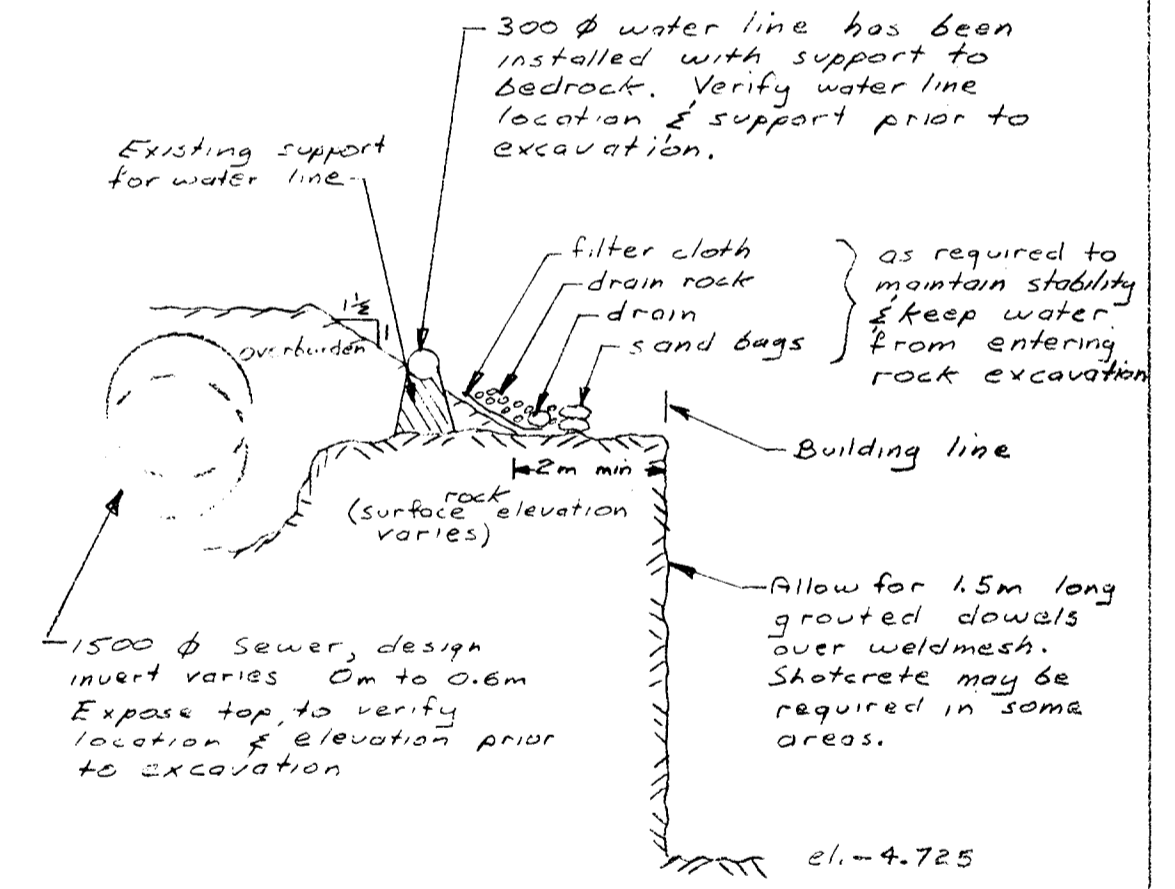 300 ϕ water line has been
installed with support to
bedrock. Verify water line
location & support prior to
excavation.
Existing support
for water line
filter cloth
drain rock
drain
sand bags
as required to
maintain stability
& keep water
from entering
rock excavation
1½
1
overburden
Building line
2m min
rock
(surface elevation
varies)
Allow for 1.5m long
grouted dowels
over weldmesh.
Shotcrete may be
required in some
areas.
1500 ϕ Sewer, design
invert varies 0m to 0.6m
Expose top, to verify
location & elevation prior
to excavation
el. -4.725